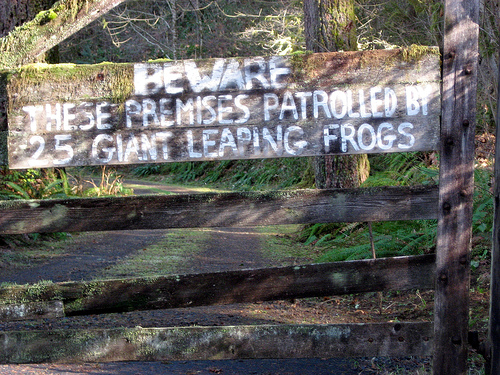 BEWARE
THESE PREMISES PATROLLED BY
25 GIANT LEAPING FROGS